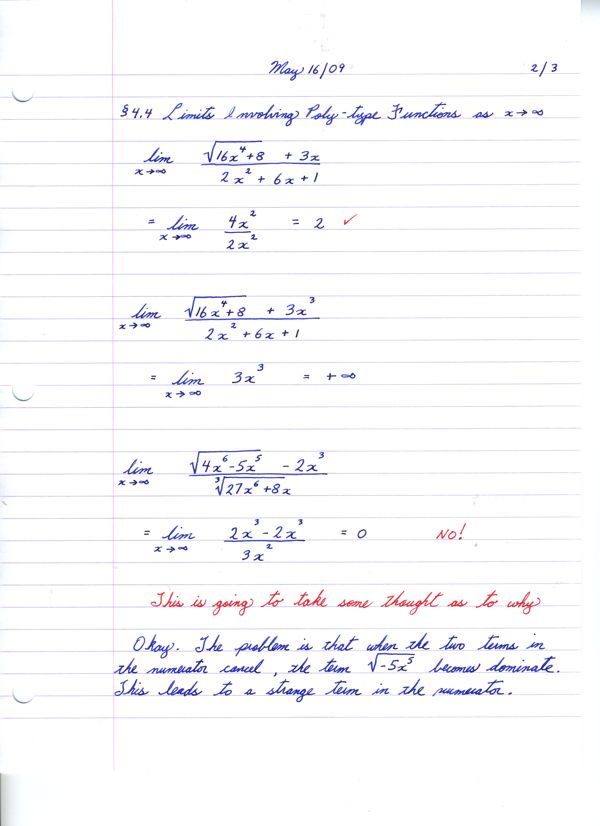 May 16/09 2/3
§4.4 Limits Involving Poly-type Functions as x→∞
lim x→∞ (√(16x⁴+8) + 3x) / (2x² + 6x + 1)
= lim x→∞ 4x² / 2x² = 2 ✓
lim x→∞ (√(16x⁴+8) + 3x³) / (2x² + 6x + 1)
= lim x→∞ 3x³ = +∞
lim x→∞ (√(4x⁶-5x⁵) - 2x³) / ∛(27x⁶+8x)
= lim x→∞ (2x³ - 2x³) / 3x² = 0 NO!
This is going to take some thought as to why
Okay. The problem is that when the two terms in
the numerator cancel, the term √(-5x⁵) becomes dominate.
This leads to a strange term in the numerator.